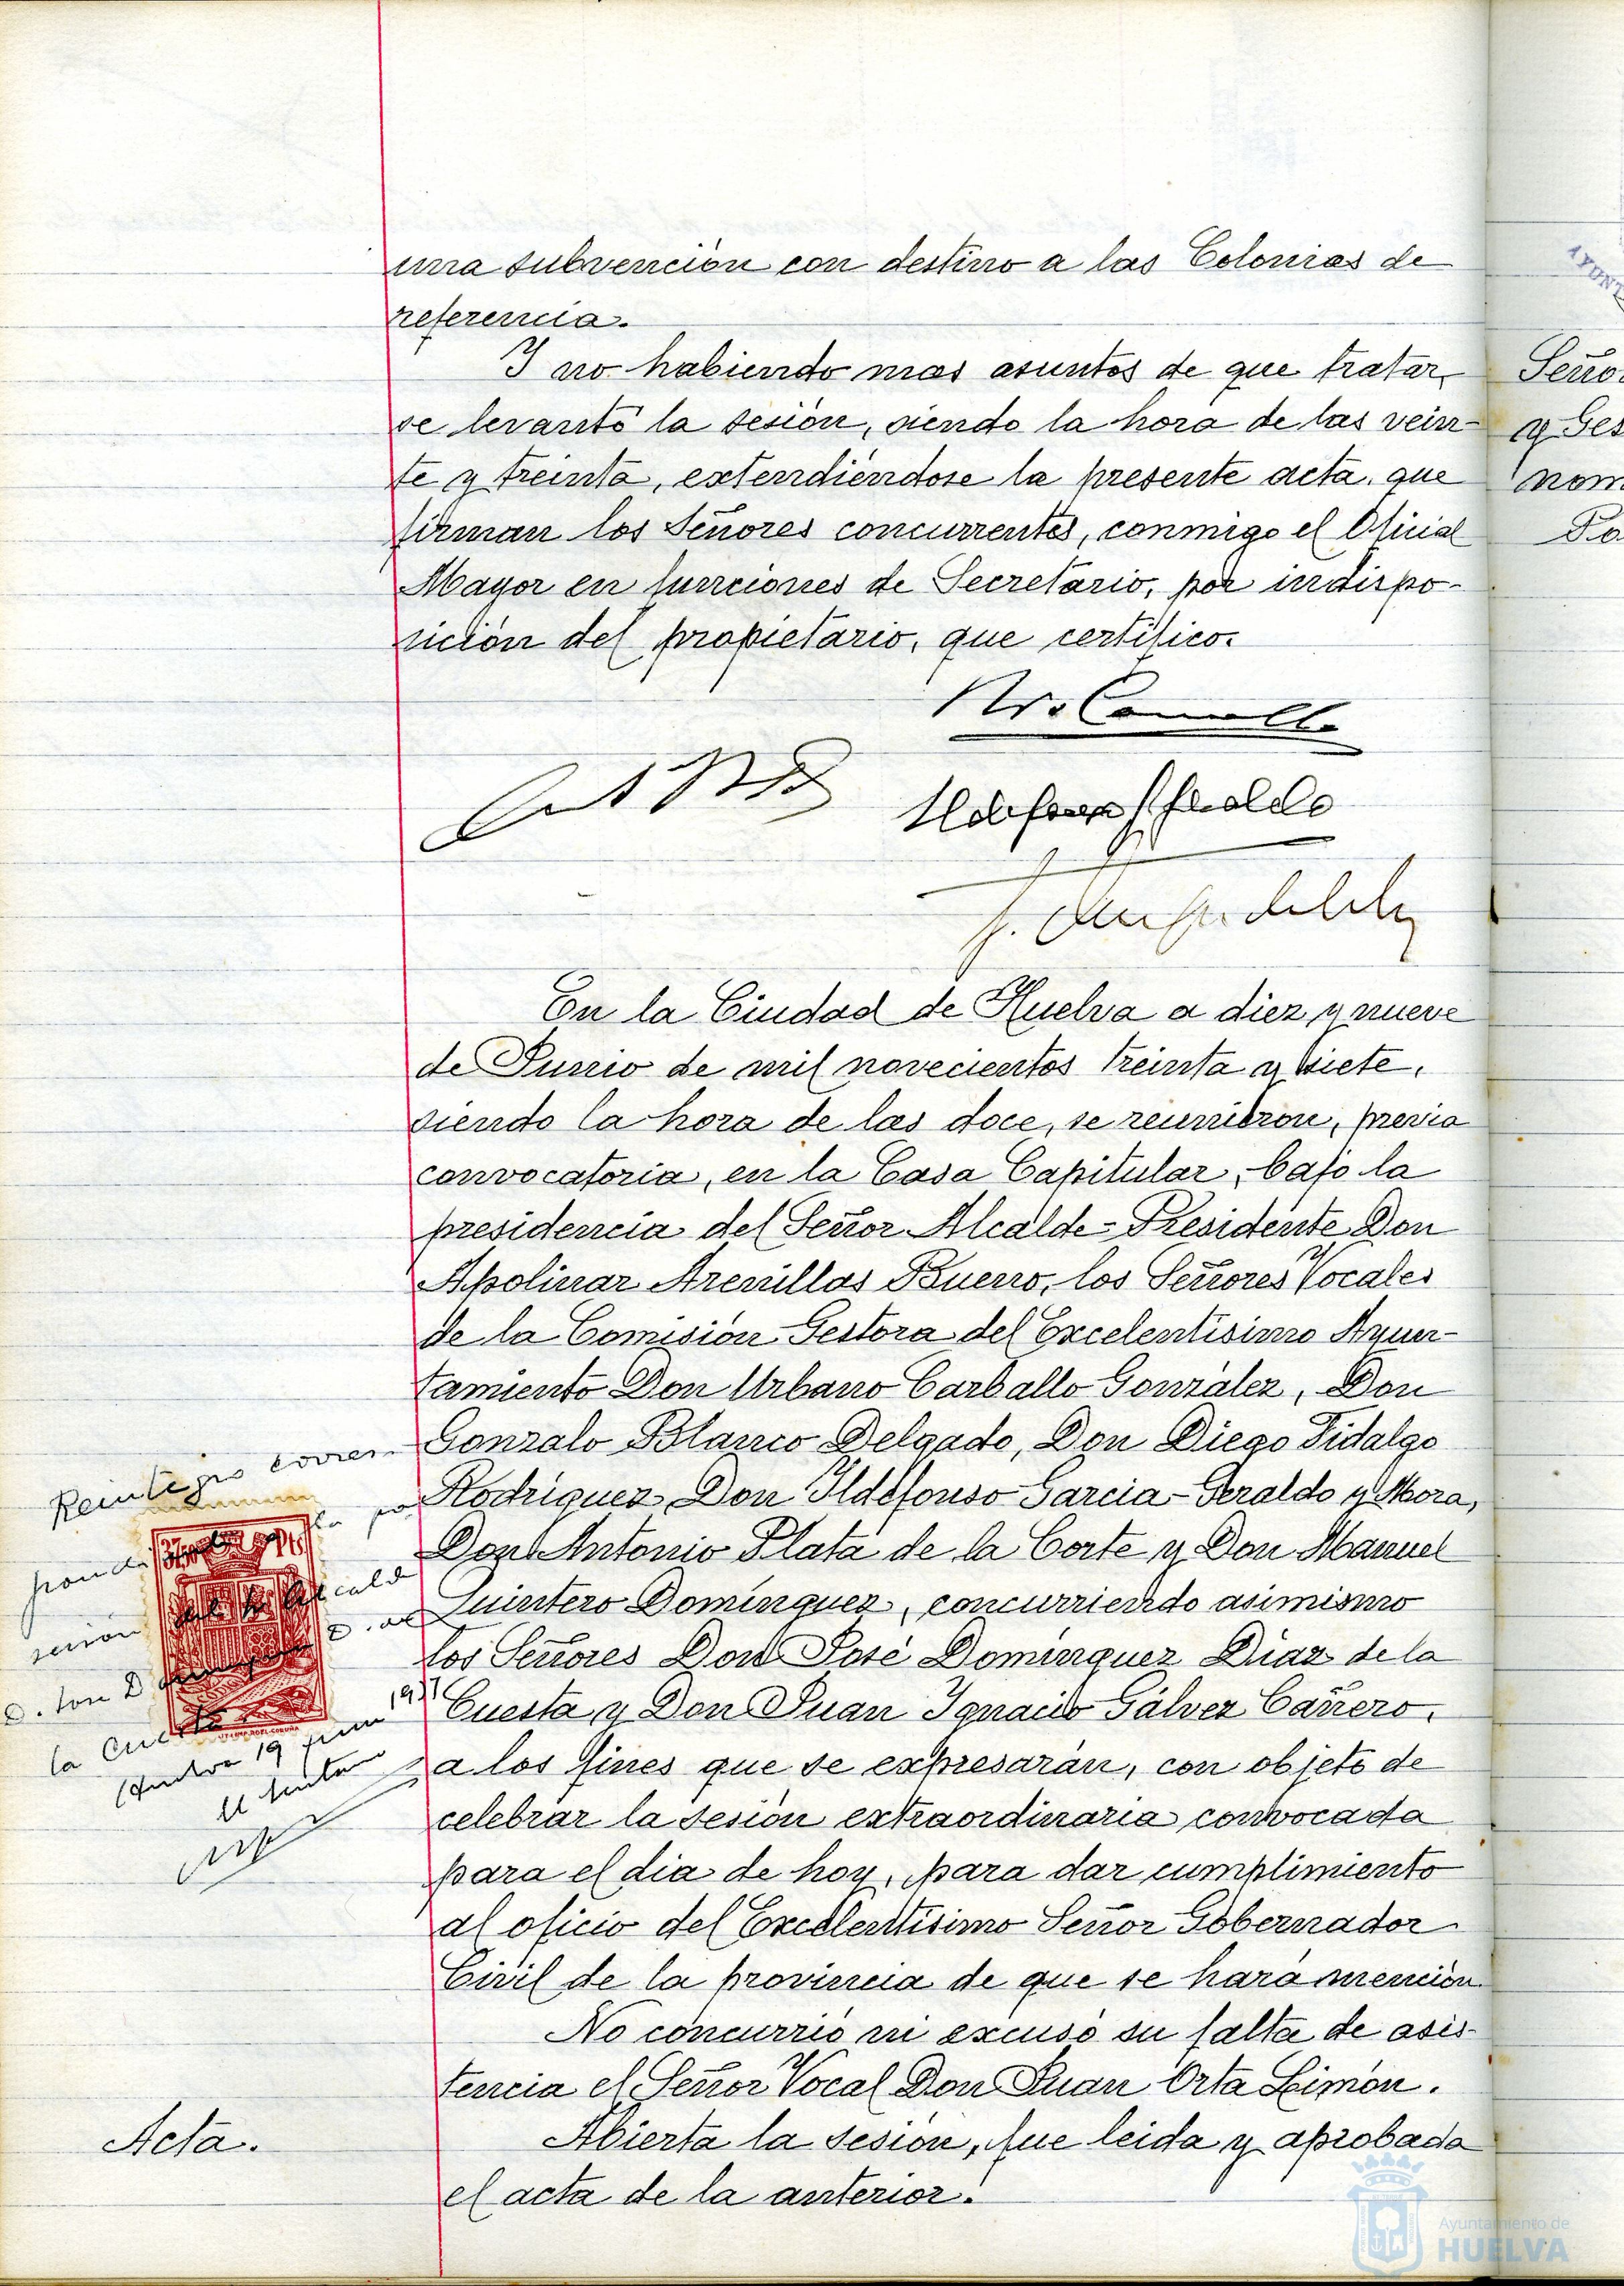 una subvención con destino a las Colonias de
referencia.
Y no habiendo mas asuntos de que tratar,
se levantó la sesión, siendo la hora de las vein-
te y treinta, extendiéndose la presente acta, que
firman los Señores concurrentes, conmigo el Oficial
Mayor en funciones de Secretario, por indispo-
sición del propietario, que certifico.
En la Ciudad de Huelva a diez y nueve
de Junio de mil novecientos treinta y siete,
siendo la hora de las doce, se reunieron, previa
convocatoria, en la Casa Capitular, bajo la
presidencia del Señor Alcalde-Presidente Don
Apolinar Arenillas Bueno, los Señores Vocales
de la Comisión Gestora del Excelentísimo Ayun-
tamiento Don Urbano Carballo González, Don
Gonzalo Blanco Delgado, Don Diego Fidalgo
Rodríguez, Don Ildefonso Garcia-Geraldo y Mora,
Don Antonio Plata de la Corte y Don Manuel
Quintero Domínguez, concurriendo asimismo
los Señores Don José Domínguez Díaz de la
Cuesta y Don Juan Ignacio Gálvez Cañero,
a los fines que se expresarán, con objeto de
celebrar la sesión extraordinaria convocada
para el dia de hoy, para dar cumplimiento
al oficio del Excelentísimo Señor Gobernador
Civil de la provincia de que se hará mención.
No concurrió ni excusó su falta de asis-
tencia el Señor Vocal Don Juan Orta Limón.
Abierta la sesión, fue leida y aprobada
el acta de la anterior.
Reintegro corres-
la po
sesión del Sr. Alcalde
la Cuesta
Huelva 19 junio 1937
Acta.
Seño
y Ges
nom
AYUNT
Ayuntamiento de
HUELVA